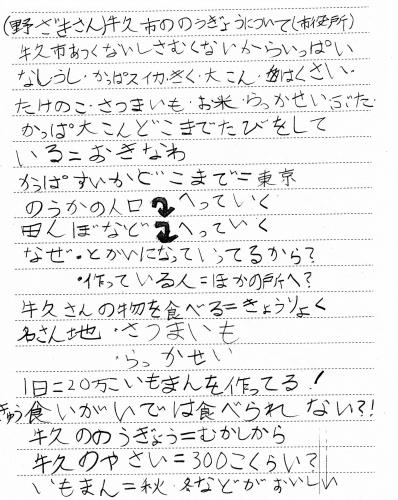 (野ざきさん)牛久市ののうぎょうについて(市役所)
牛久市あつくないしさむくないからいっぱい
なし うし・かっぱスイカ・きく・大こん・はくさい・
たけのこ・さつまいも・お米・らっかせい・ぶた・
かっぱ大こんどこまでたびをして
いる=おきなわ
かっぱすいかどこまで=東京
のうかの人口⤵へっていく
田んぼなど⤵へっていく
なぜ・とかいになっていってるから?
・作っている人=ほかの所へ?
牛久さんの物を食べる=きょうりょく
名さん地・さつまいも
・らっかせい
1日=20万こいもまんを作ってる!
きゅう食いがいでは食べられない?!
牛久ののうぎょう=むかしから
牛久のやさい=300こくらい?
いもまん=秋・冬などがおいしい